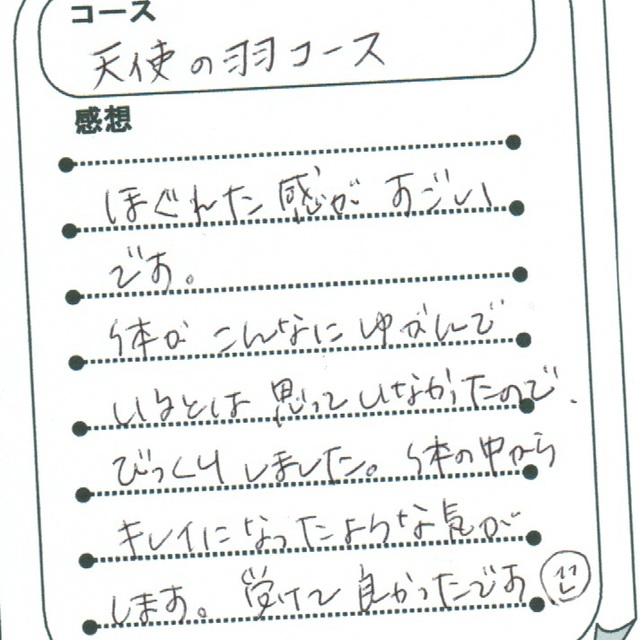 コース
天使の羽コース
感想
ほぐれた感がすごい
です。
体がこんなにゆがんで
いるとは思っていなかったので、
びっくりしました。体の中から
キレイになったような気が
します。受けて良かったです